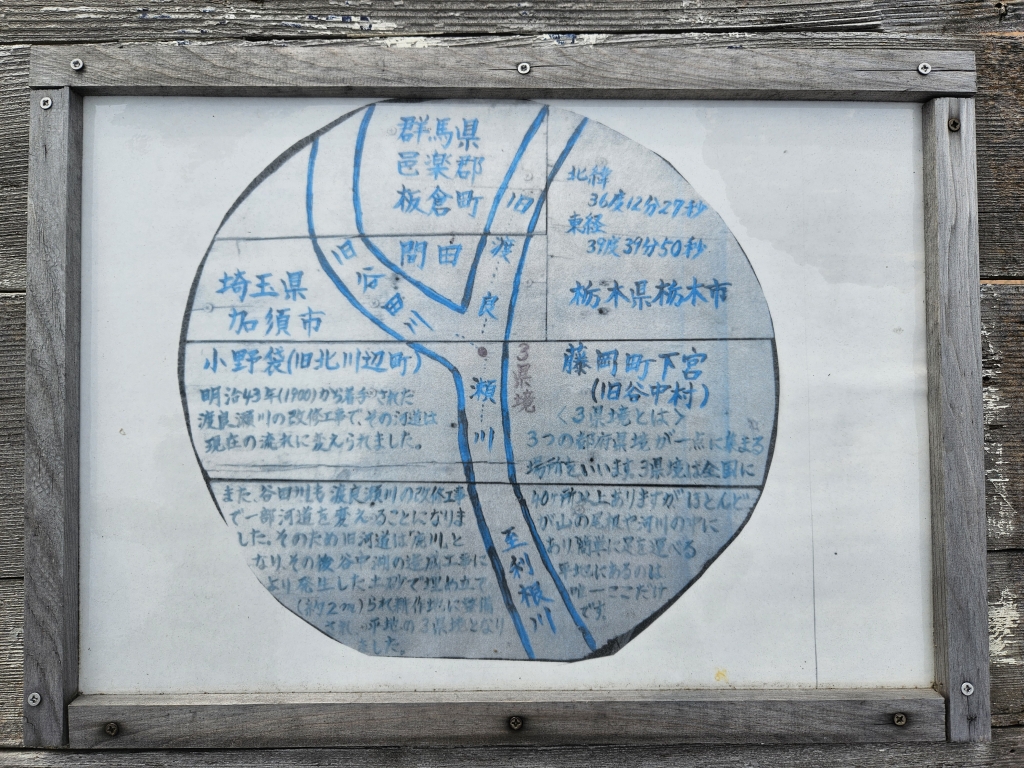 群馬県
邑楽郡
板倉町
間田
旧渡良瀬川
旧谷田川
北緯
36度12分27秒
東経
39度39分50秒
栃木県栃木市
埼玉県
加須市
小野袋(旧北川辺町)
明治43年(1900)から着手された
渡良瀬川の改修工事で、その河道は
現在の流れに変えられました。
3県境
藤岡町下宮
(旧谷中村)
〈3県境とは〉
3つの都府県境が一点に集まる
場所をいいます。3県境は全国に
40ヶ所以上ありますが、ほとんど
が山の尾根や河川の中に
あり簡単に足を運べる
平地にあるのは
唯一ここだけ
です。
また、谷田川も渡良瀬川の改修工事
で一部河道を変えることになりま
した。そのため旧河道は「廃川」と
なり、その後谷中湖の造成工事に
より発生した土砂で埋め立て
(約2m)られ耕作地に整備
され、平地の3県境となり
ました。
至利根川